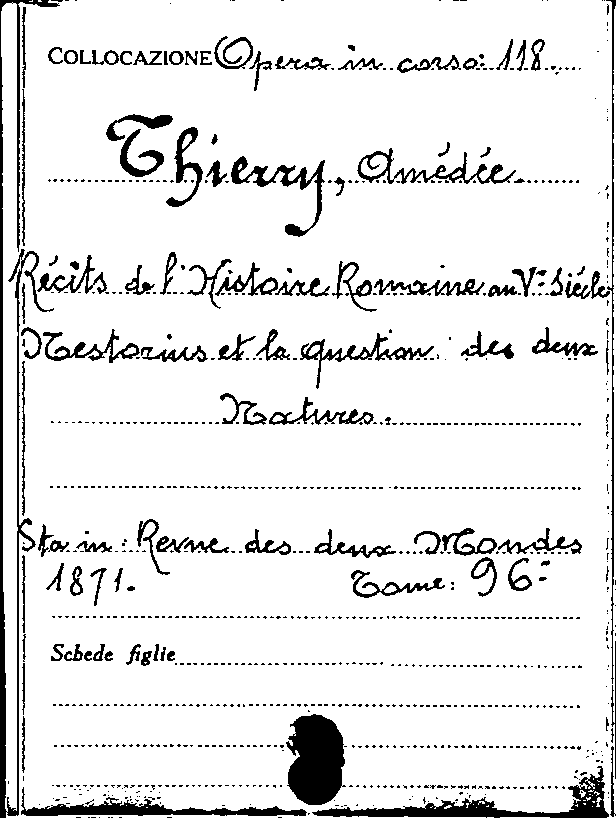 COLLOCAZIONE Opera in corso: 118.
Thierry, Amédée.
Récits de l'Histoire Romaine au Ve Siécle
Nestorius et la question des deux
Natures.
Sta in: Revue des deux Mondes
1871. Tome: 96=
Schede figlie